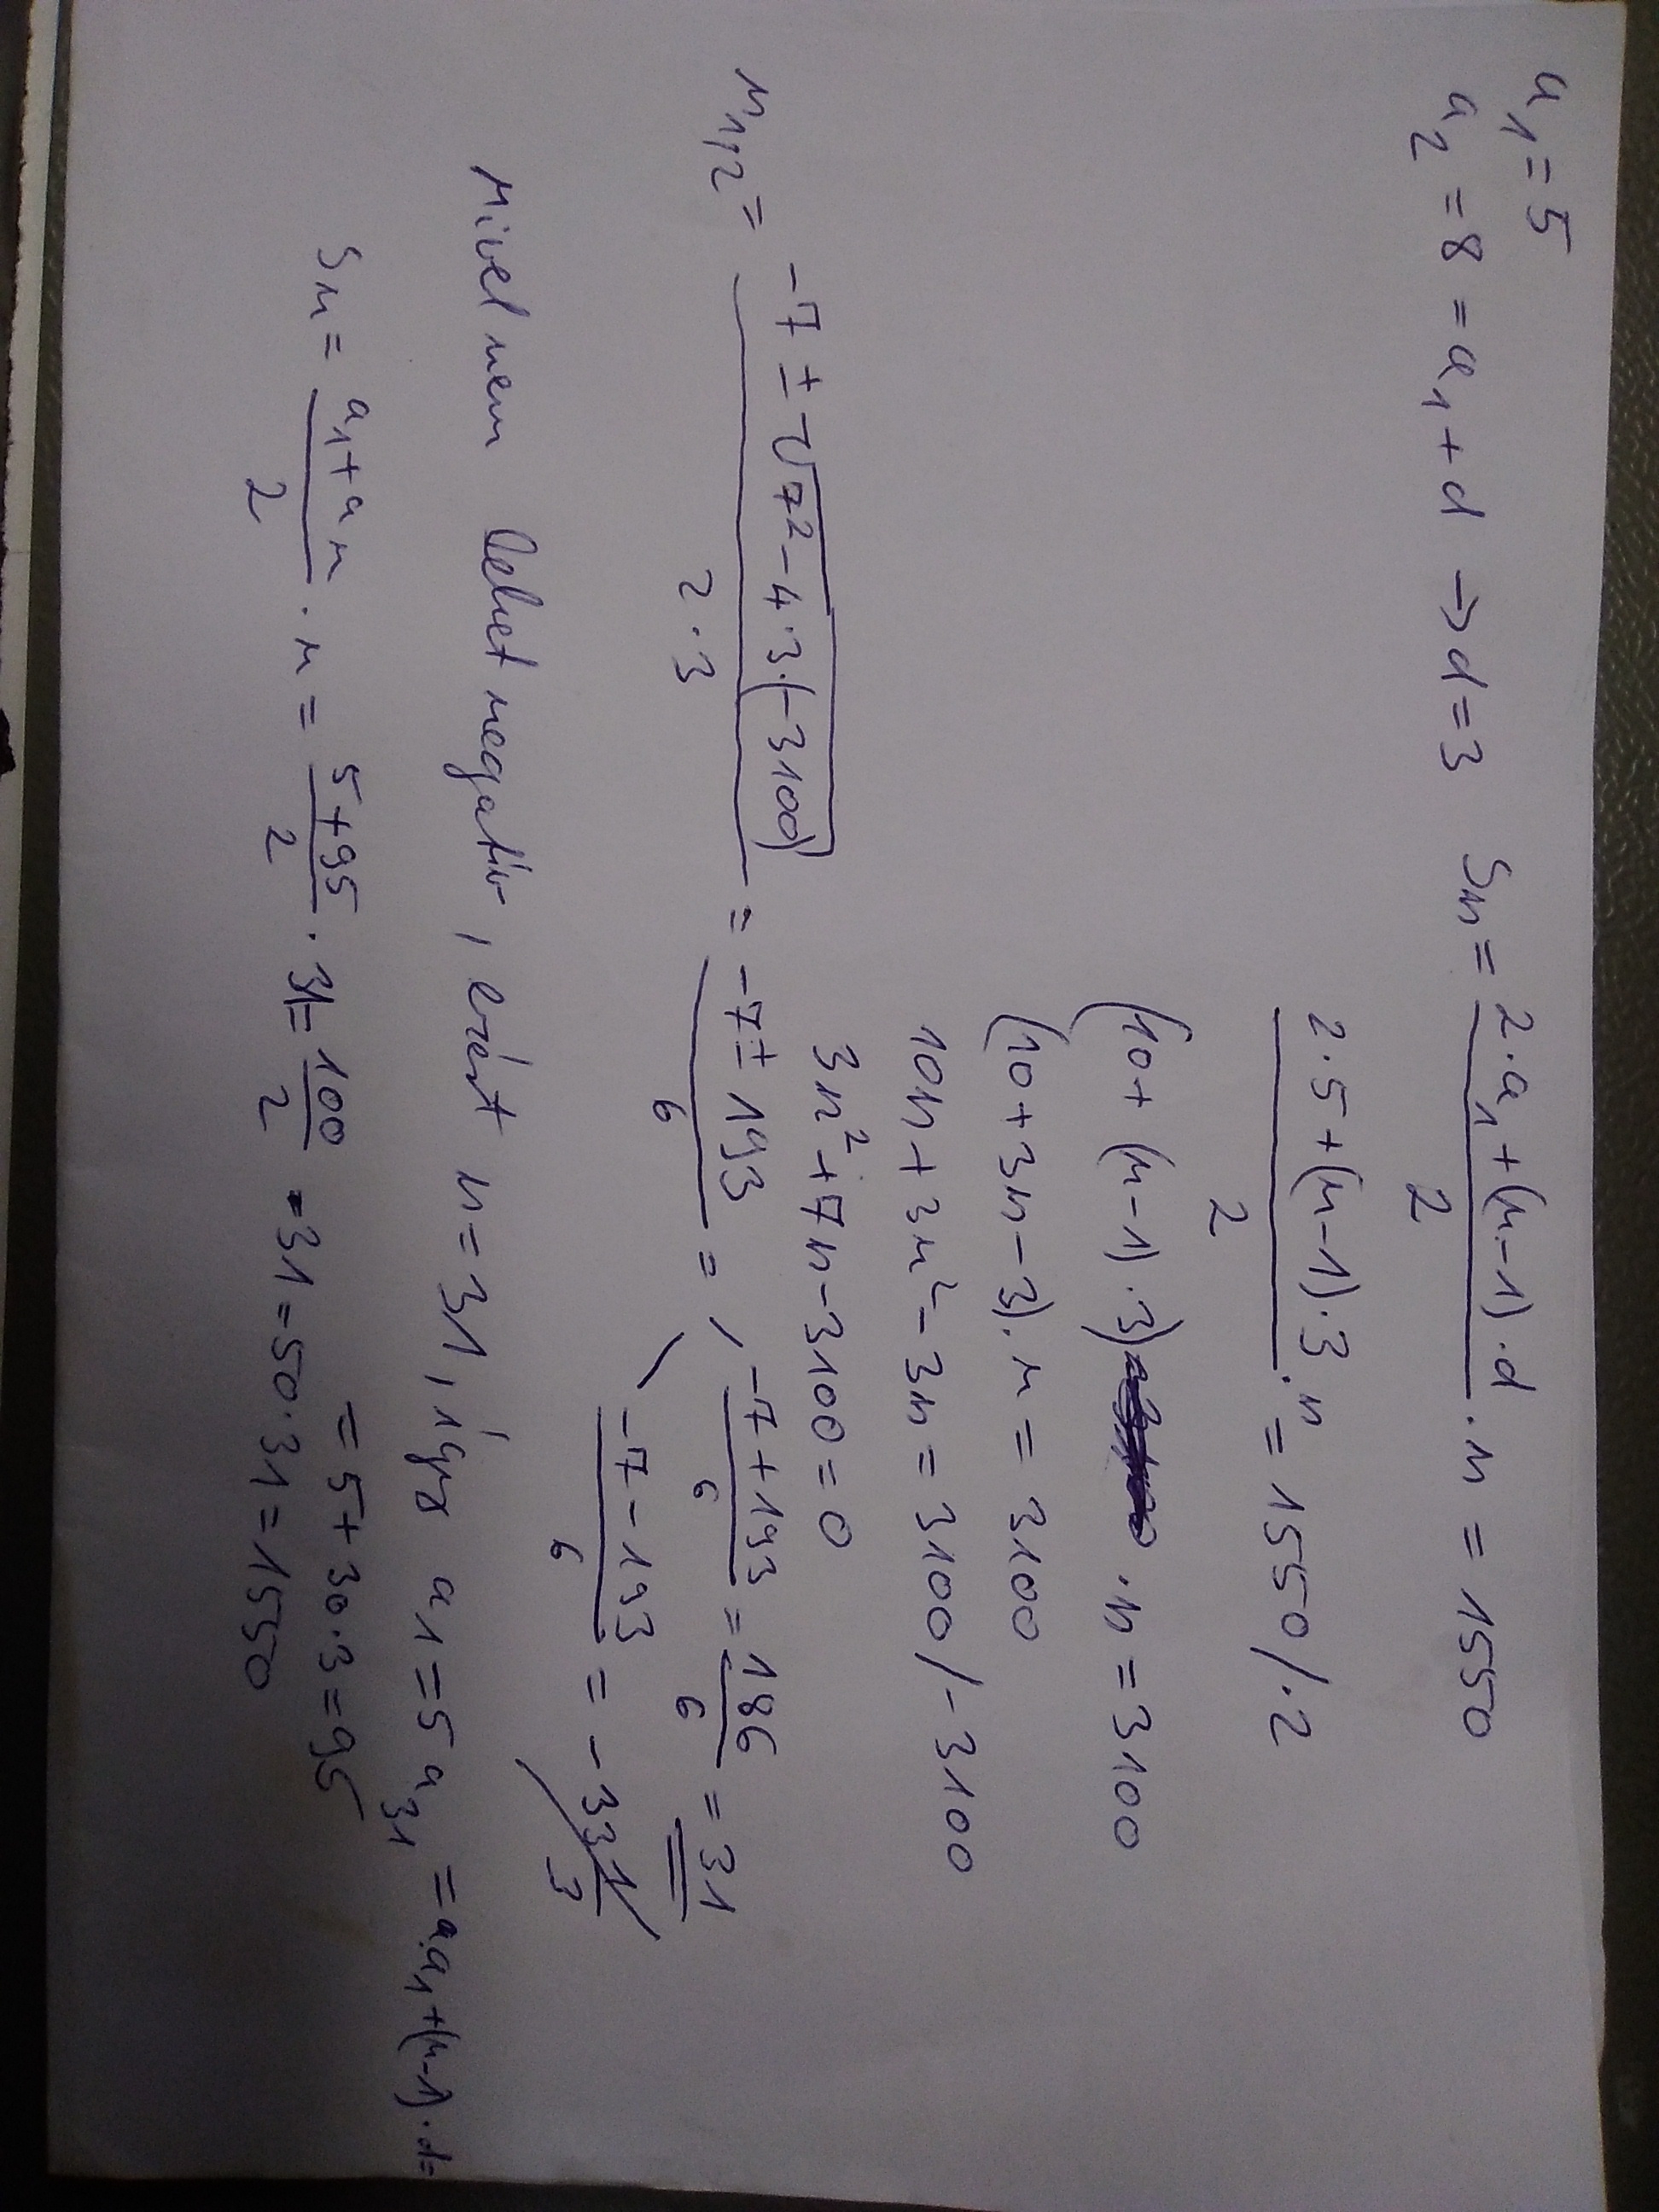 a₁ = 5
a₂ = 8 = a₁ + d → d = 3   Sn = (2·a₁ + (n-1)·d)/2 · n = 1550
(2·5 + (n-1)·3)/2 · n = 1550 /·2
(10 + (n-1)·3) · n = 3100
(10 + 3n - 3) · n = 3100
10n + 3n² - 3n = 3100 / -3100
3n² + 7n - 3100 = 0
n₁,₂ = (-7 ± √(7² - 4·3·(-3100)))/(2·3) = (-7 ± 193)/6 = (-7 + 193)/6 = 186/6 = 31
(-7 - 193)/6 = -33 1/3
Mivel nem lehet negatív, ezért n = 31, így a₁ = 5 a₃₁ = a₁ + (n-1)·d =
= 5 + 30·3 = 95
Sn = (a₁ + an)/2 · n = (5 + 95)/2 · 31 = 100/2 · 31 = 50·31 = 1550